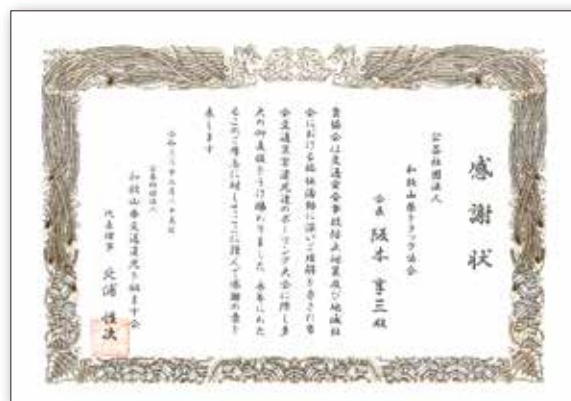 感謝状
公益社団法人
和歌山県トラック協会
会長 阪本 享三 殿
貴協会は交通安全事故防止対策及び地域社
会における福祉活動に深いご理解を示され当
会交通災害遺児達のボーリング大会に際し多
大の御支援をうけ賜わりました 永年にわた
るこのご厚志に対しここに謹んで感謝の意を
表します
公益社団法人
和歌山県交通遺児を励ます会
代表理事 北浦